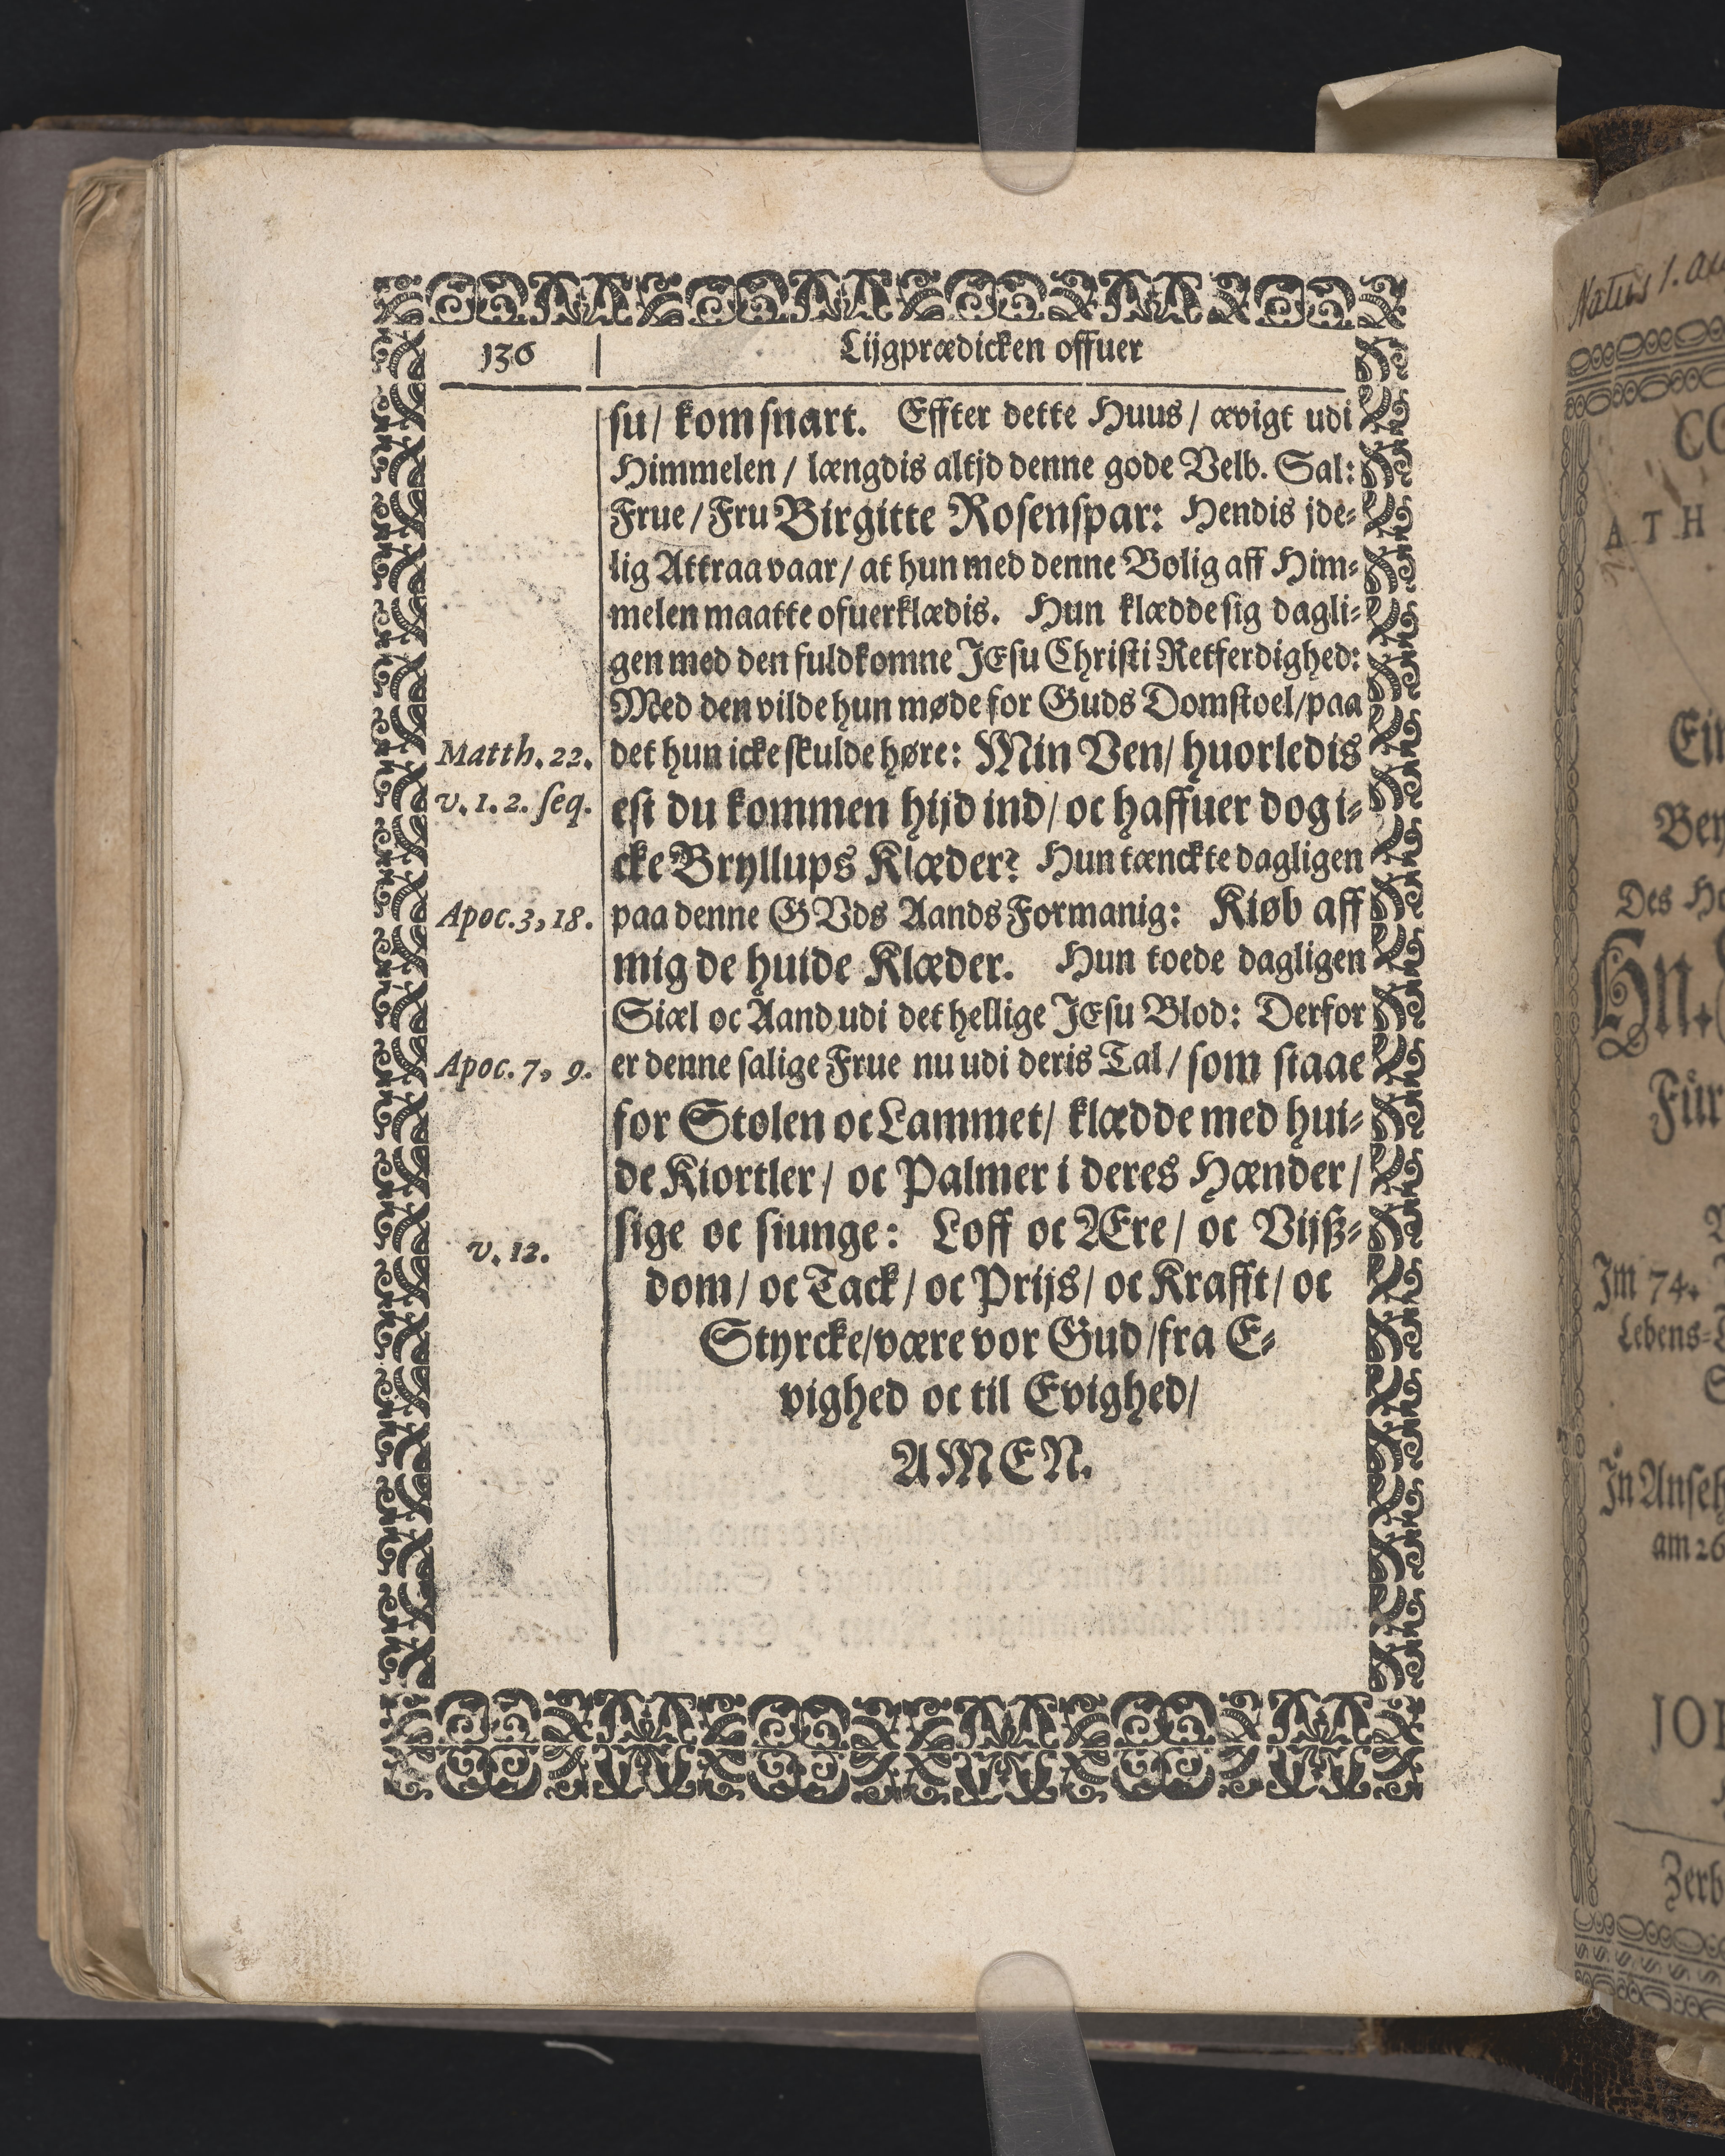 136
Lijgprædicken offuer
su/ kom snart. Effter dette Huus/ ævigt udi
Himmelen/ længdis altjd denne gode Velb. Sal:
Frue/ Fru Birgitte Rosenspar: Hendis jde-
lig Attraa vaar/ at hun med denne Bolig aff Him-
melen maatte ofuerklædis. Hun klædde sig dagli-
gen med den fuldkomne JEsu Christi Retferdighed:
Med den vilde hun møde for Guds Domstoel/ paa
Matth. 22.
det hun icke skulde høre: Min Ven/ huorledis
v. 1. 2. seq.
est du kommen hijd ind/ oc haffuer dog i-
cke Bryllups Klæder? Hun tænckte dagligen
Apoc. 3, 18.
paa denne GVds Aands Formanig: Kiøb aff
mig de huide Klæder. Hun toede dagligen
Siæl oc Aand udi det hellige JEsu Blod: Derfor
Apoc. 7, 9.
er denne salige Frue nu udi deris Tal/ som staae
for Stolen oc Lammet/ klædde med hui-
de Kiortler/ oc Palmer i deres Hænder/
sige oc siunge: Loff oc Ære/ oc Vijß-
v. 12.
dom/ oc Tack/ oc Prijs/ oc Krafft/ oc
Styrcke/ være vor Gud/ fra E-
vighed oc til Evighed/
AMEN.
Natus 1.
ATH
Des
Hn.
Für
Im 74.
Lebens-
am 26
JO
Zerb